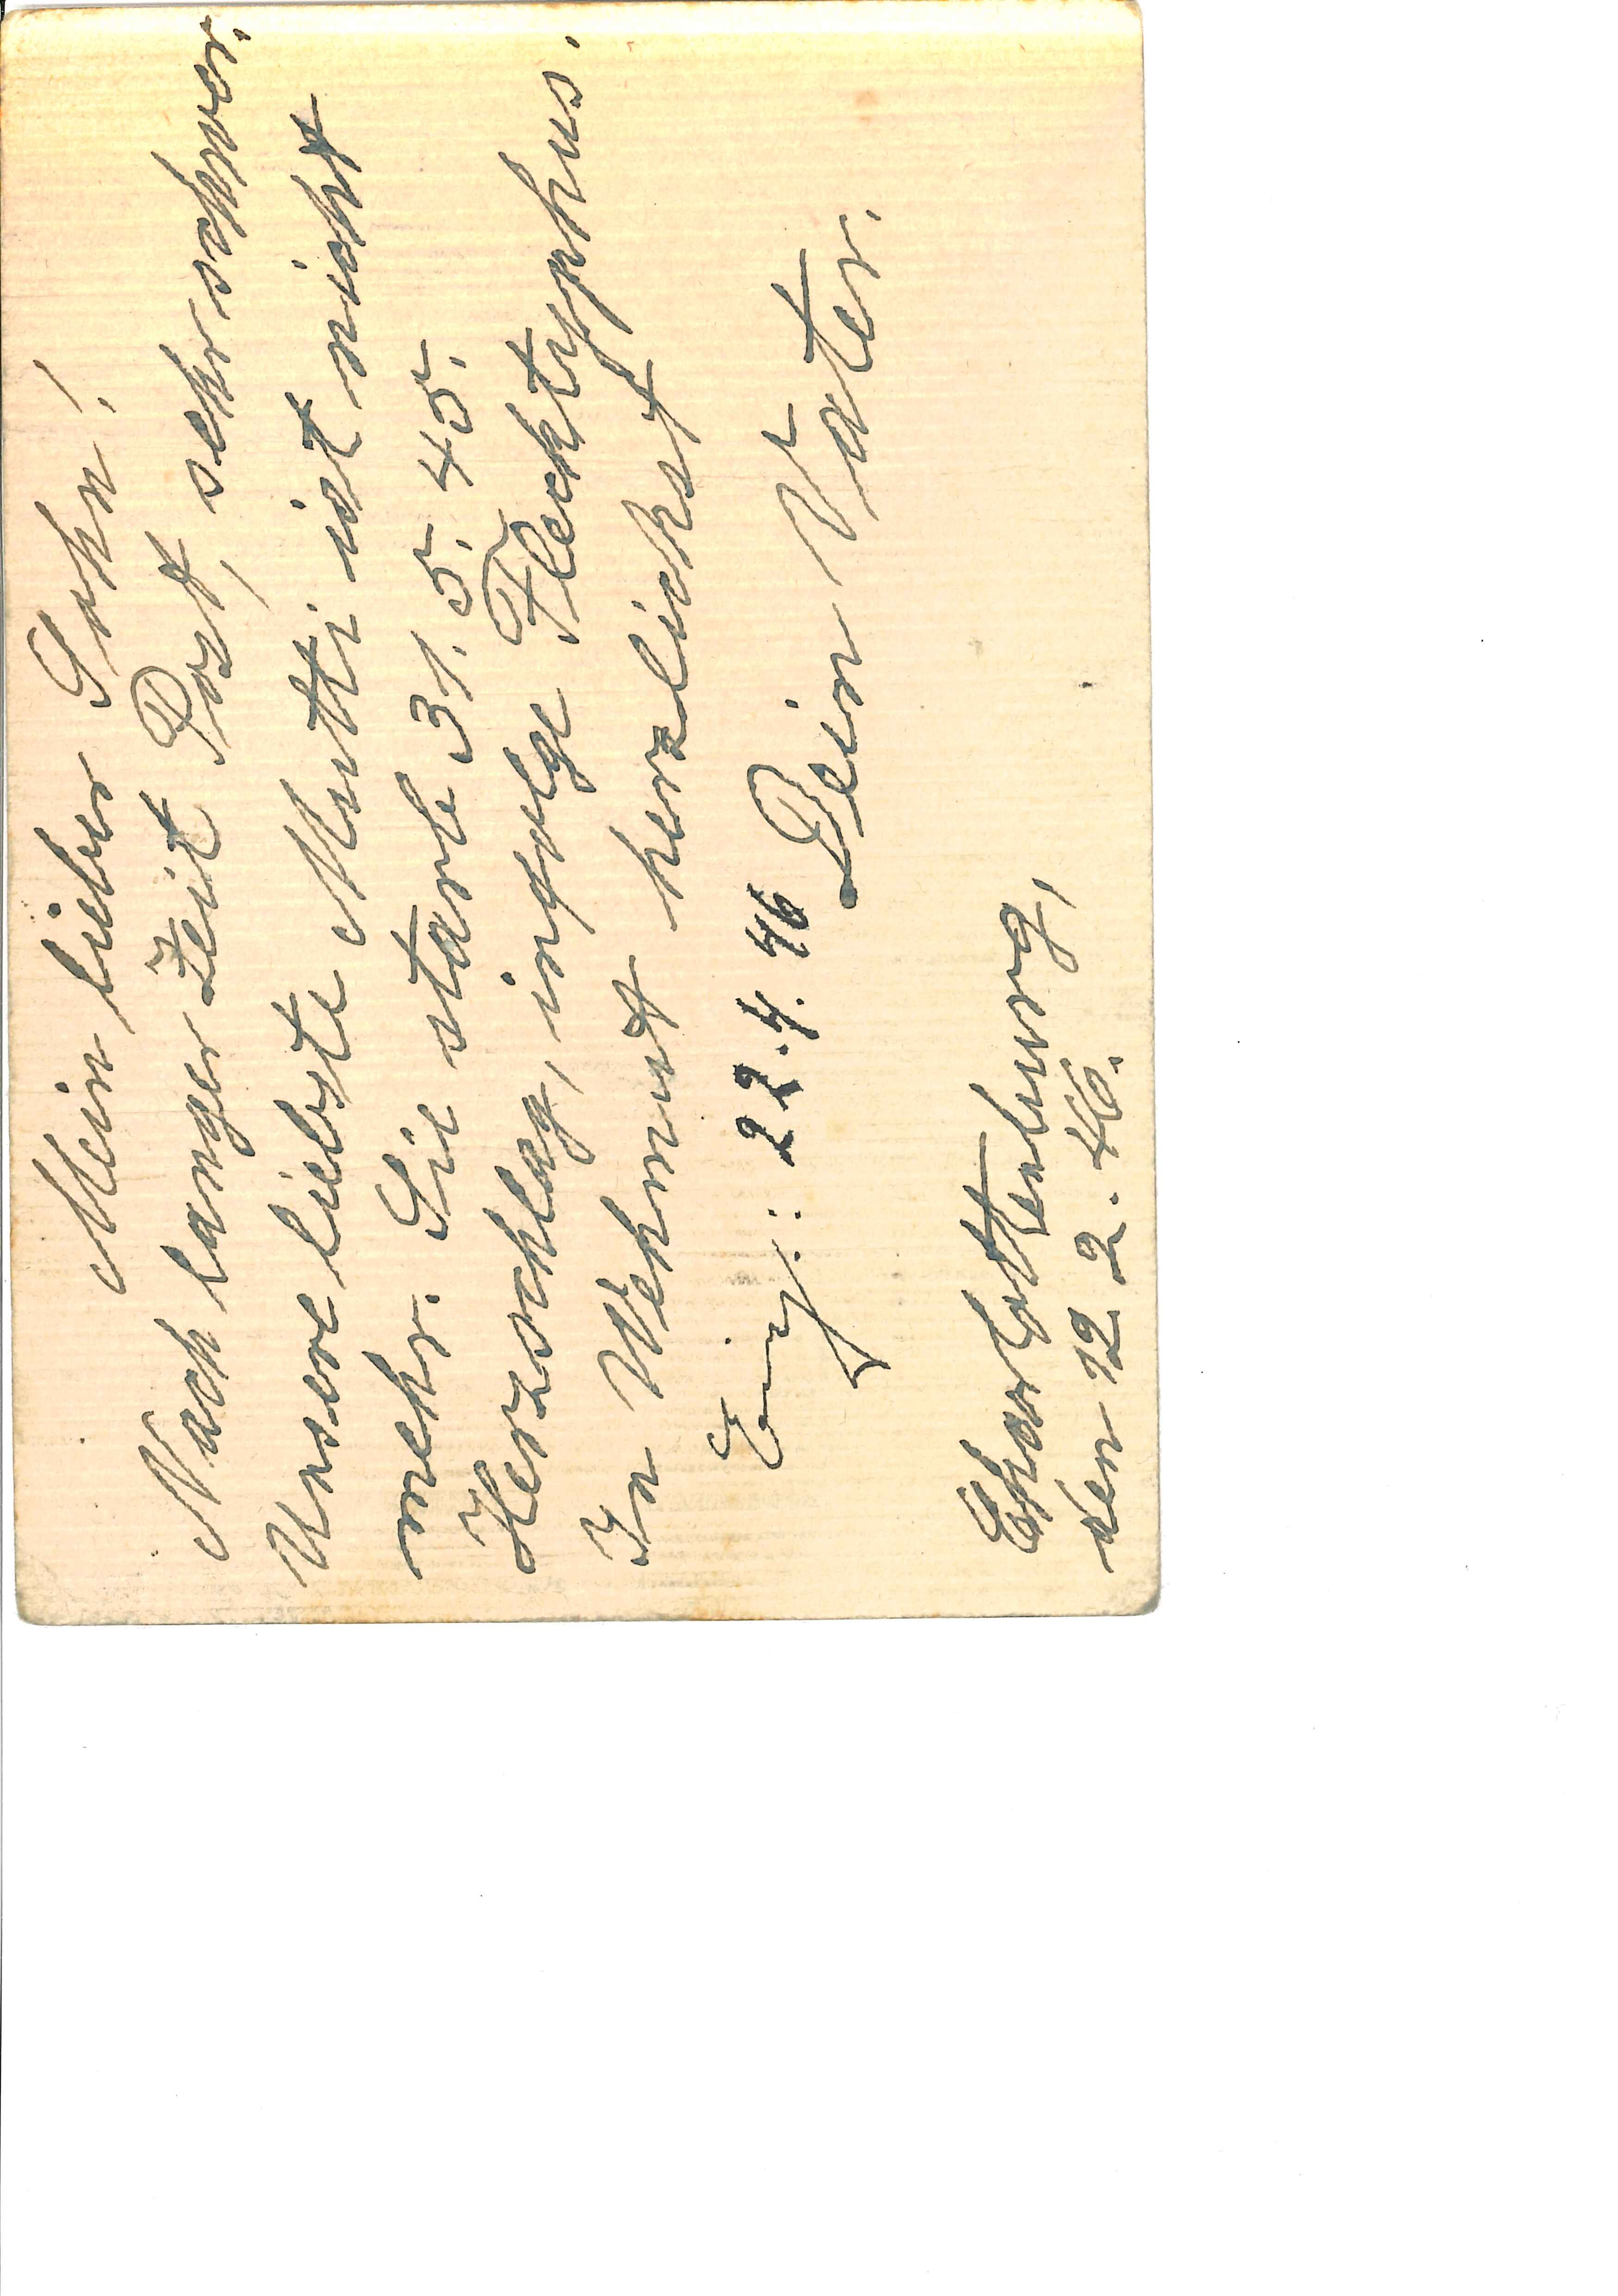 Mein lieber Sohn!
Nach langer Zeit Post, sehr schwer.
Unsere liebste Mutti ist nicht
mehr. Sie starb 31. 5. 45.
Herzschlag, infolge Flecktyphus.
In Wehmut herzlichst
Eing.: 22.4.46 Dein Vater.
Charlottenburg,
den 12. 2. 46.